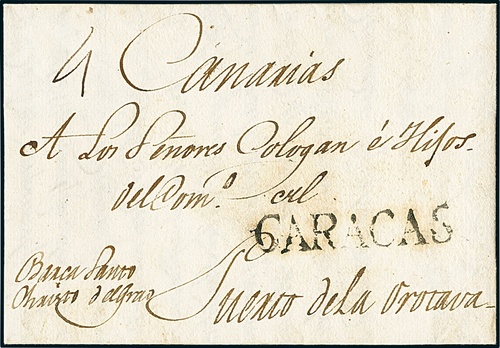 4 Canarias
A Los Señores Cologan é Hijos.
del Com.º crl
CARACAS
Puerto de la Orotava
Barca Santo
Christo del Grao